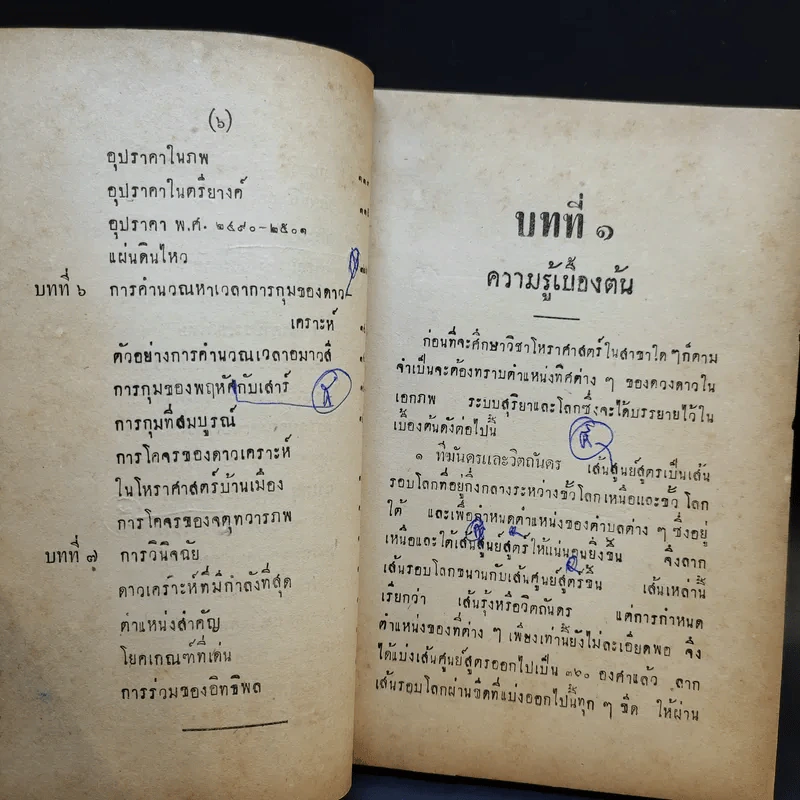 (๖)
อุปราคาในภพ
อุปราคาในตรียางค์
อุปราคา พ.ศ. ๒๔๙๐-๒๕๐๑
แผ่นดินไหว
บทที่ ๖ การคำนวณหาเวลาการกุมของดาว
เคราะห์
ตัวอย่างการคำนวณเวลาอมาวสี
การกุมของพฤหัสกับเสาร์
การกุมที่สมบูรณ์
การโคจรของดาวเคราะห์
ในโหราศาสตร์บ้านเมือง
การโคจรของจตุทวารภพ
บทที่ ๗ การวินิจฉัย
ดาวเคราะห์ที่มีกำลังที่สุด
ตำแหน่งสำคัญ
โยคเกณฑ์ที่เด่น
การร่วมของอิทธิพล
บทที่ ๑
ความรู้เบื้องต้น
ก่อนที่จะศึกษาวิชาโหราศาสตร์ในสาขาใด ๆก็ตาม
จำเป็นจะต้องทราบตำแหน่งทิศต่าง ๆ ของดวงดาวใน
เอกภพ ระบบสุริยาและโลกซึ่งจะได้บรรยายไว้ใน
เบื้องต้นดังต่อไปนี้
๑ ทีฆันดรและวิตถันดร เส้นศูนย์สูตรเป็นเส้น
รอบโลกที่อยู่กึ่งกลางระหว่างขั้วโลกเหนือและขั้ว โลก
ใต้ และเพื่อกำหนดตำแหน่งของตำบลต่าง ๆ ซึ่งอยู่
เหนือและใต้เส้นศูนย์สูตรให้แน่นอนยิ่งขึ้น จึงลาก
เส้นรอบโลกขนานกับเส้นศูนย์สูตรขึ้น เส้นเหล่านี้
เรียกว่า เส้นรุ้งหรือวิตถันดร แต่การกำหนด
ตำแหน่งของที่ต่าง ๆ เพียงเท่านี้ยังไม่ละเอียดพอ จึง
ได้แบ่งเส้นศูนย์สูตรออกไปเป็น ๓๖๐ องศาแล้ว ลาก
เส้นรอบโลกผ่านขีดที่แบ่งออกไปนั้นทุก ๆ ขีด ให้ผ่าน